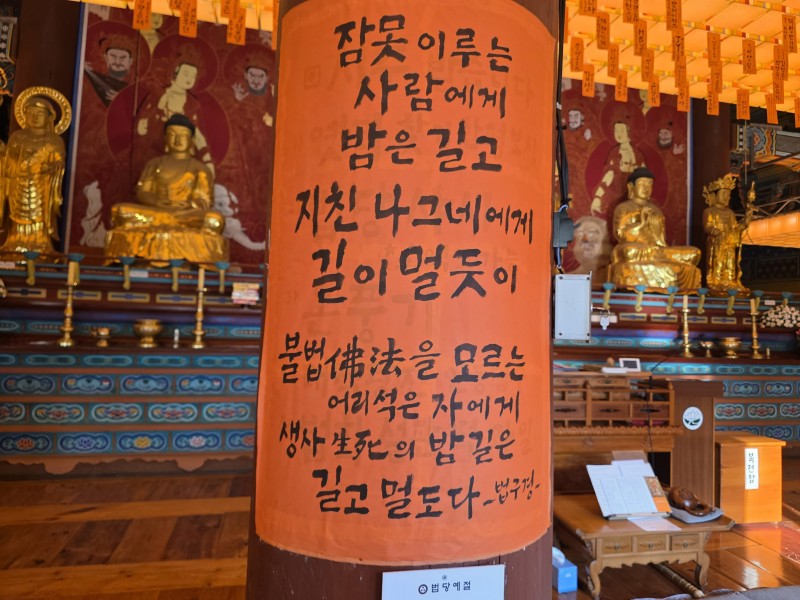 잠못 이루는
사람에게
밤은 길고
지친 나그네에게
길이 멀듯이
불법佛法을 모르는
어리석은 자에게
생사生死의 밤길은
길고 멀도다 -법구경-
법당예절